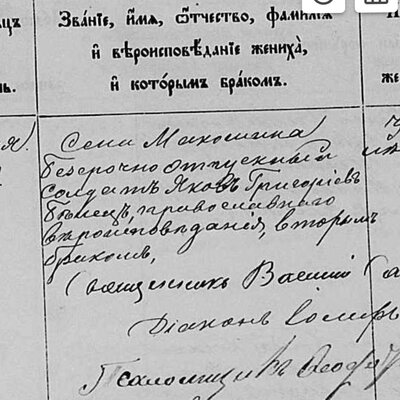 Зва́нїе, и҆́мѧ, ѻ҆́тчество, фамилїѧ
и҆ вѣроисповѣданїе жениха̀,
и҆ кото́рымъ бра́комъ.
Села Макошина
безсрочно отпускный
солдатъ Яковъ Григоріевъ
православнаго
вѣроисповѣданія, вторымъ
бракомъ,
Священникъ Василій
Діаконъ
Псаломщикъ